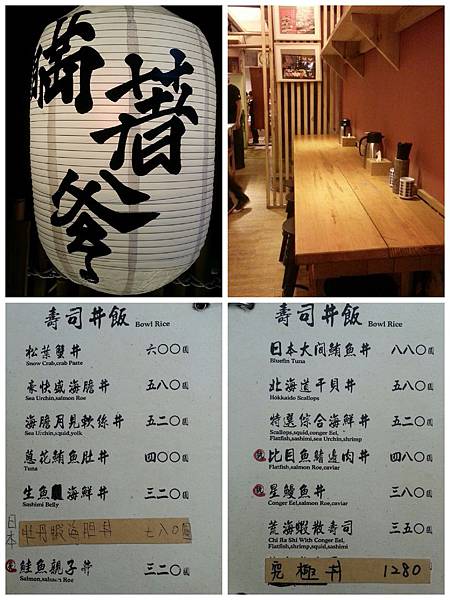 瞞著爹
壽司丼飯 Bowl Rice
松葉蟹丼 六〇〇圓
Snow Crab,crab Paste
豪快盛海膽丼 五八〇圓
Sea Urchin,salmon Roe
海膽月見軟絲丼 五二〇圓
Sea Urchin,squid,yolk
蔥花鮪魚肚丼 四〇〇圓
Tuna
生魚 海鮮丼 三二〇圓
Sashimi Belly
日本 牡丹蝦海胆丼 七八0圓
鮭魚親子丼 三二〇圓
Salmon,salmon Roe
壽司丼飯 Bowl Rice
日本大间鮪魚丼 八八〇圓
Bluefin Tuna
北海道干貝丼 五八〇圓
Hokkaido Scallops
特選綜合海鮮丼 五二〇圓
Scallops,squid,conger Eel,
Flatfish,sashimi,sea Urchin,shrimp
比目魚鰭邊肉丼 四八〇圓
Flatfish,salmon Roe,caviar
星鰻魚丼 三八〇圓
Conger Eel,salmon Roe,caviar
荒海蝦散壽司 三五〇圓
Chi Ra Shi With Conger Eel,
Flatfish,shrimp,squid,sashimi
究極丼 1280